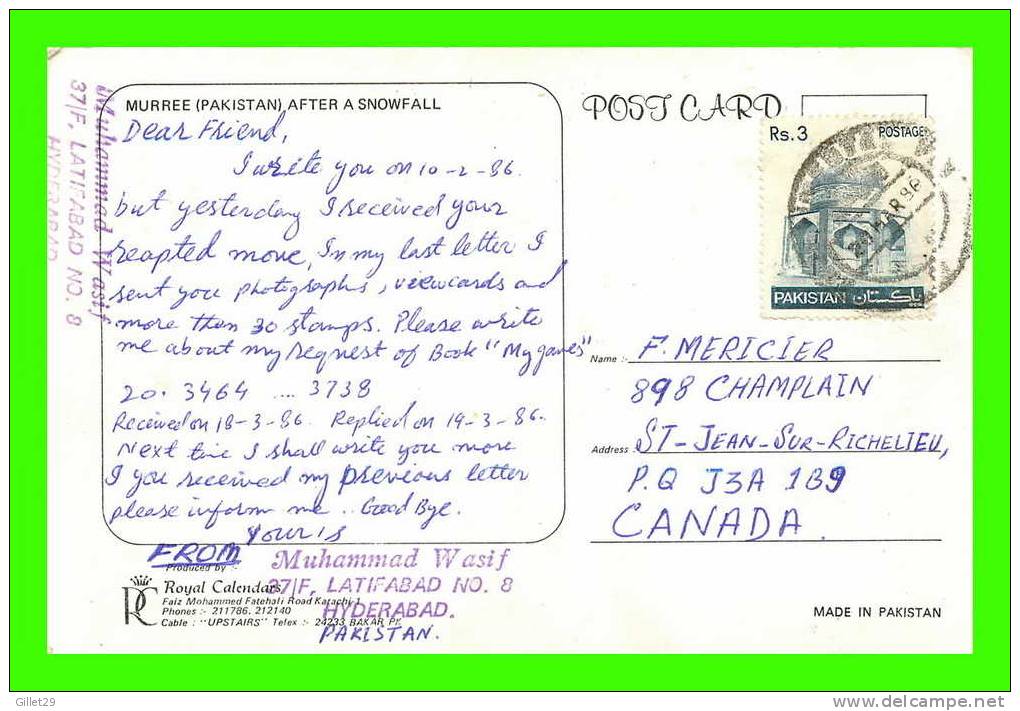 MURREE (PAKISTAN) AFTER A SNOWFALL
Dear Friend,
I write you on 10-2-86.
but yesterday I received your
reapted move, In my last letter I
sent you photographs, viewcards and
more than 30 stamps. Please write
me about my request of Book "My games"
20. 3464 .... 3738
Received on 18-3-86. Replied on 19-3-86.
Next time I shall write you more
I you received my previous letter
please inform me .. Good Bye.
Your's
FROM
Muhammad Wasif
37/F, LATIFABAD NO. 8
HYDERABAD.
PAKISTAN.
Muhammad Wasif
37/F, LATIFABAD NO. 8
HYDERABAD
Produced by :-
Royal Calendars
Faiz Mohammed Fatehali Road Karachi-1
Phones :- 211786. 212140
Cable : "UPSTAIRS" Telex :- 24233 BAKAR PK
POST CARD
Rs. 3 POSTAGE
MAR 86
PAKISTAN پاکستان
Name :- F. MERICIER
898 CHAMPLAIN
Address ST-JEAN-SUR-RICHELIEU,
P.Q J3A 1B9
CANADA.
MADE IN PAKISTAN
Gillet29
www.delcampe.net